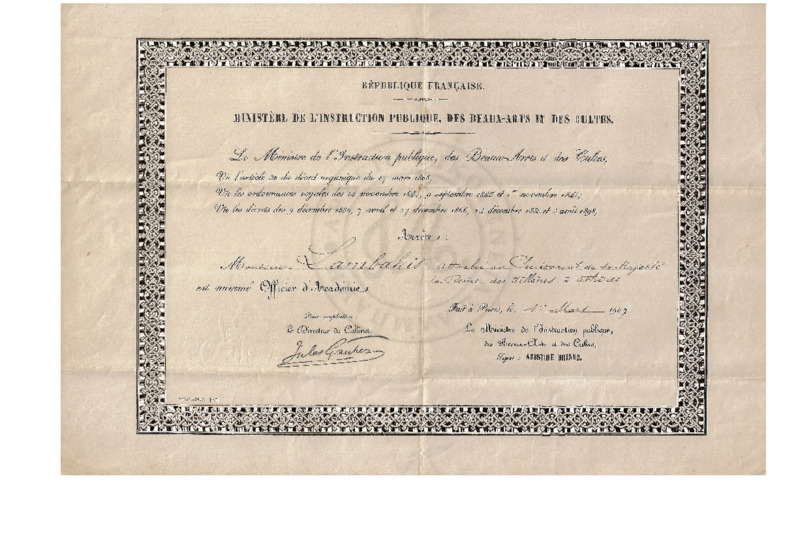 RÉPUBLIQUE FRANÇAISE.
MINISTÈRE DE L'INSTRUCTION PUBLIQUE, DES BEAUX-ARTS ET DES CULTES.
Le Ministre de l'Instruction publique, des Beaux-Arts et des Cultes,
Vu l'article 32 du décret organique du 17 mars 1808,
Vu les ordonnances royales des 14 novembre 1844, 9 septembre 1845 et 1er novembre 1846;
Vu les décrets des 9 décembre 1850, 7 avril et 27 décembre 1866, 24 décembre 1885 et 4 août 1898,
Arrête:
Monsieur Lambakis attaché au de Sa Majesté
la Reine des Hellènes à Athènes
est nommé Officier d'Académie.
Fait à Paris, le 1er Mars 1907
Pour ampliation:
Le Directeur du Cabinet
Jules Gautier
Le Ministre de l'Instruction publique,
des Beaux-Arts et des Cultes,
Signé: ARISTIDE BRIAND.